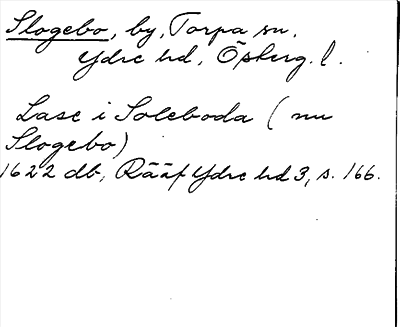 Slogebo, by, Torpa sn.
Ydre hd, Österg. l.
Lasse i Soleboda (nu
Slogebo)
1622 db, Rääf Ydre hd 3, s. 166.